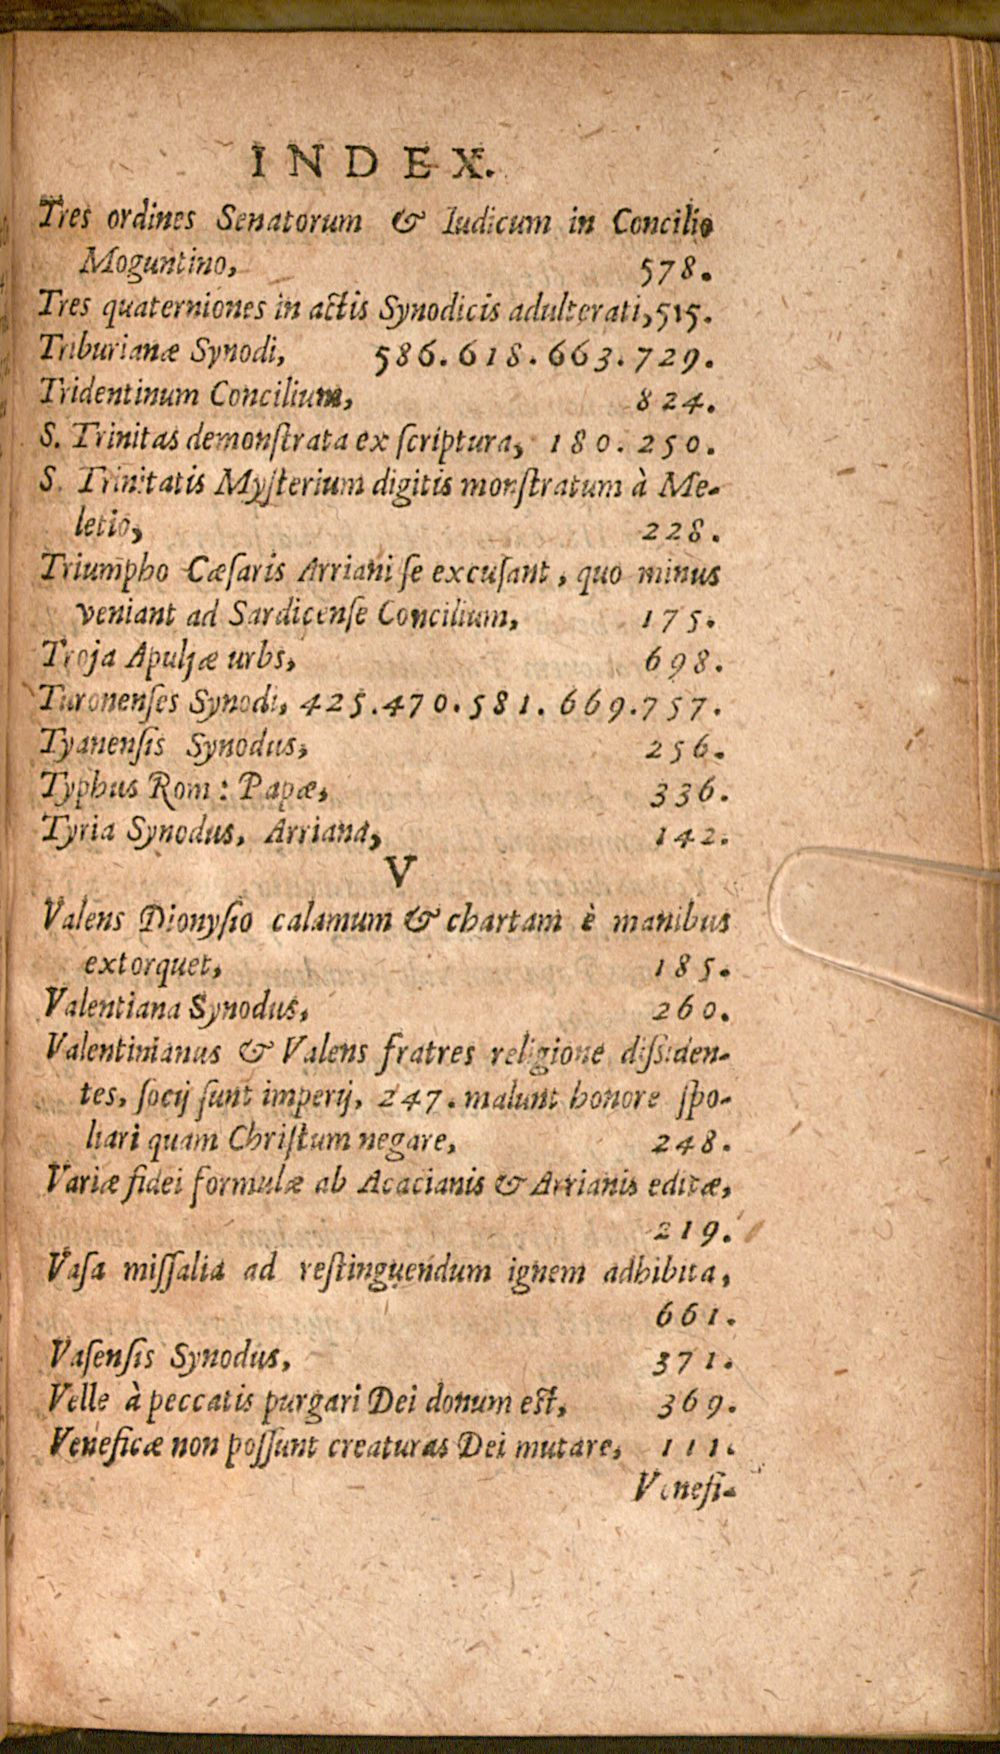 INDEX.
Tres ordines Senatorum & Iudicum in Concilio
Moguntino, 578.
Tres quaterniones in actis Synodicis adulterati, 515.
Triburianæ Synodi, 586. 618. 663. 729.
Tridentinum Concilium, 824.
S. Trinitas demonſtrata ex ſcriptura, 180. 250.
S. Trinitatis Myſterium digitis monſtratum à Me-
letio, 228.
Triumpho Cæſaris Arriani ſe excuſant, quo minus
veniant ad Sardicenſe Concilium, 175.
Troja Apuljæ urbs, 698.
Turonenſes Synodi, 425. 470. 581. 669. 757.
Tyanenſis Synodus, 256.
Typhus Rom: Papæ, 336.
Tyria Synodus, Arriana, 142.
V
Valens Dionyſio calamum & chartam è manibus
extorquet, 185.
Valentiana Synodus, 260.
Valentinianus & Valens fratres religione diſsiden-
tes, ſocij ſunt imperij, 247. malunt honore ſpo-
liari quam Chriſtum negare, 248.
Variæ fidei formulæ ab Acacianis & Arrianis editæ,
219.
Vaſa miſſalia ad reſtinguendum ignem adhibita,
661.
Vaſenſis Synodus, 371.
Velle à peccatis purgari Dei donum eſt, 369.
Veneficæ non poſſunt creaturas Dei mutare, 111.
Venefi-